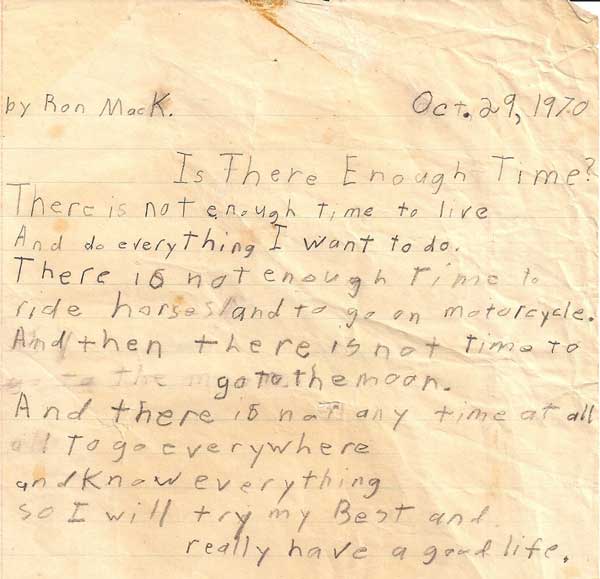 by Ron Mack. Oct. 29, 1970
Is There Enough Time?
There is not enough time to live
And do everything I want to do.
There is not enough time to
ride horses and to go on motorcycle.
And then there is not time to
go to the moon.
And there is not any time at all
to go everywhere
and know everything
so I will try my Best and
really have a good life.